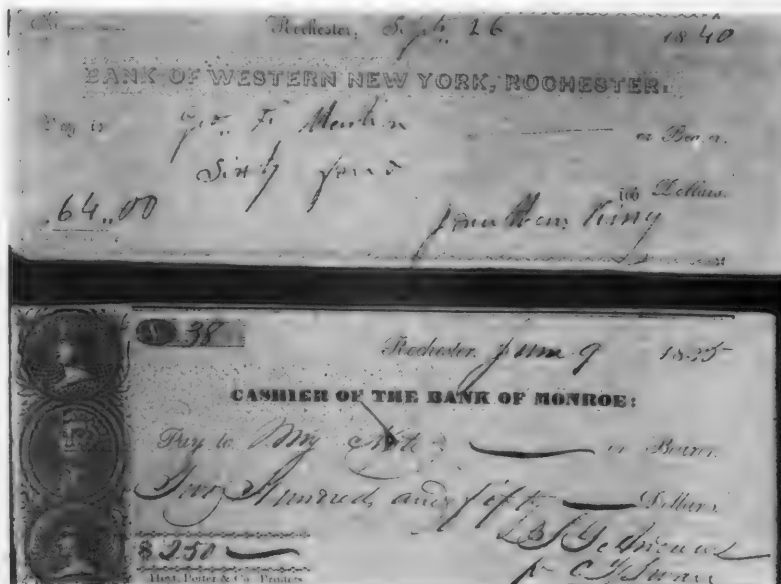 Rochester, Sept. 26 1840
BANK OF WESTERN NEW YORK, ROCHESTER.
Pay to Geo. F. or Bearer
Sixty four
100 Dollars.
64.00 Jonathan King
38
Rochester, June 9 1835
CASHIER OF THE BANK OF MONROE:
Pay to My Note or Bearer
Two Hundred and fifty Dollars
$250
Hoyt, Porter & Co. Printers